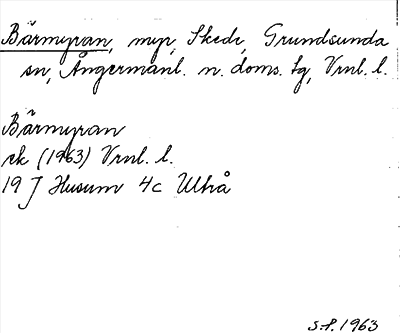 Bärmyran, myr, Skede, Grundsunda
sn, Ångermanl. n. doms. tg, Vrnl. l.
Bärmyran
ek (1963) Vrnl. l.
19 J Husum 4c Ulvå
S.P. 1963